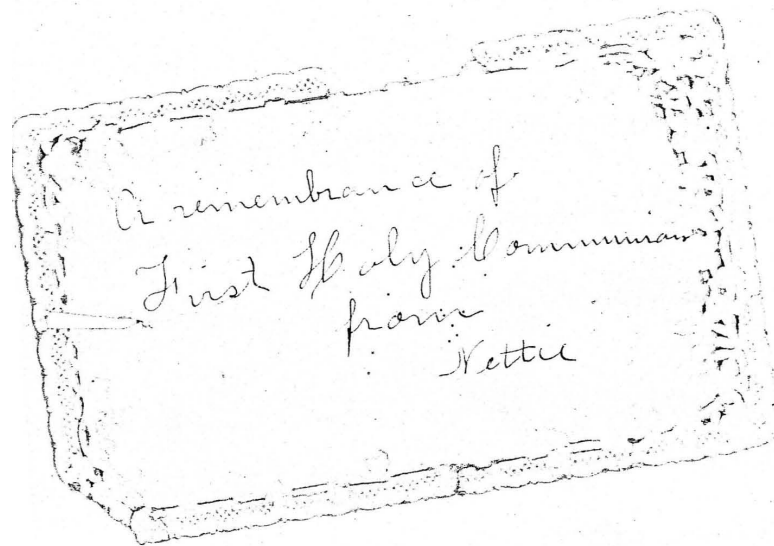 A remembrance of
First Holy Communion
from
Nettie